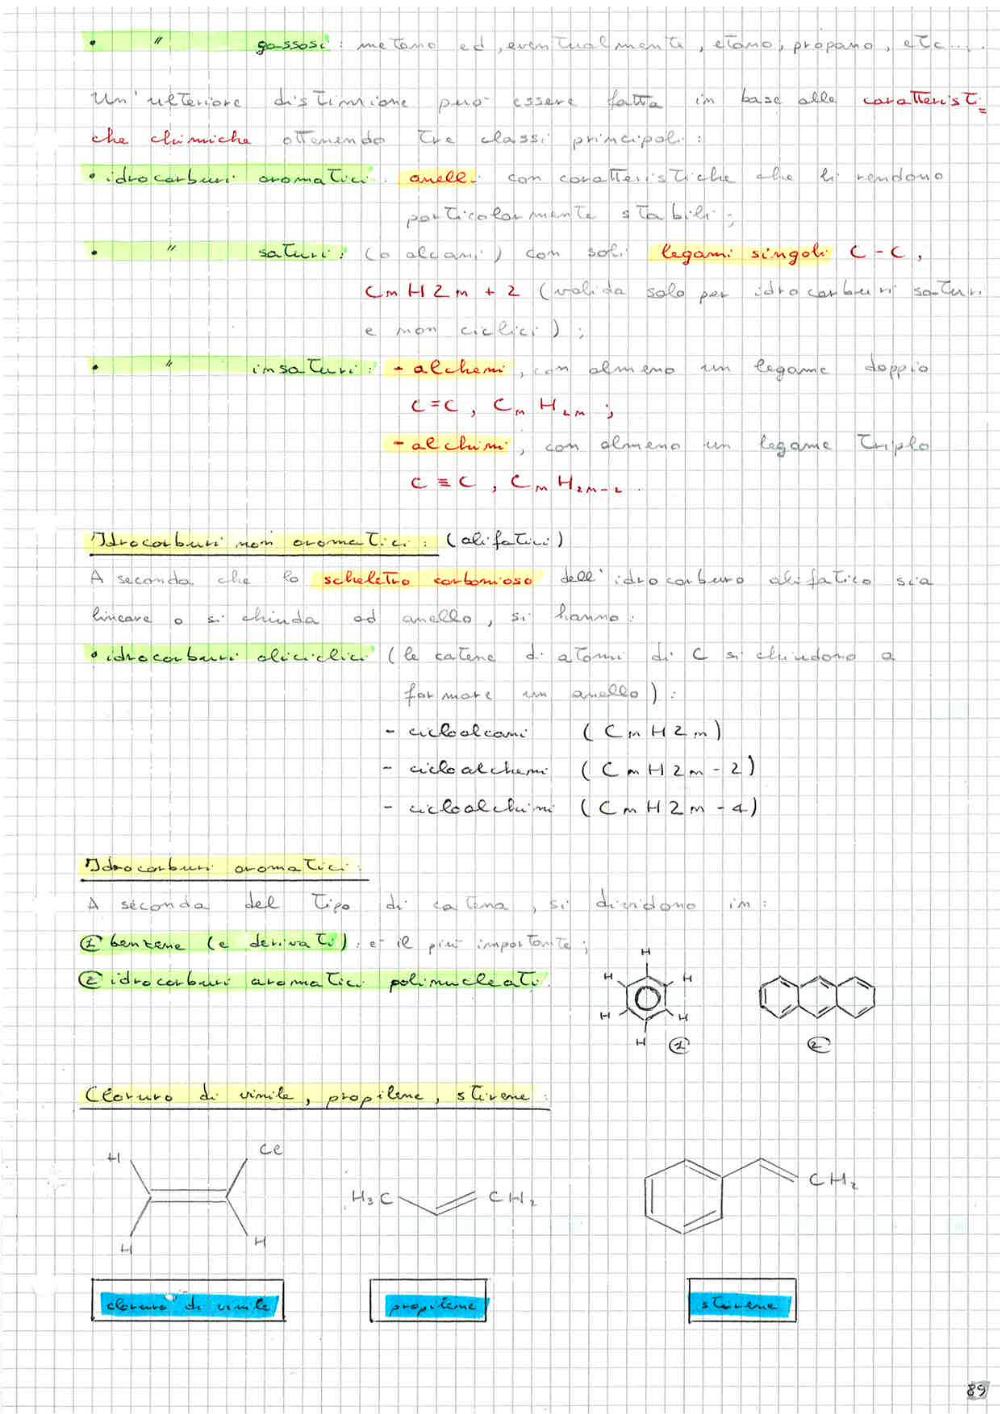 • " gassosi: metano ed, eventualmente, etano, propano, etc....
Un'ulteriore distinzione può essere fatta in base alle caratteristi=
che chimiche ottenendo tre classi principali:
• idrocarburi aromatici: anelli con caratteristiche che li rendono
particolarmente stabili;
• " saturi: (o alcani) con soli legami singoli C-C,
CnH2n+2 (valida solo per idrocarburi saturi
e non ciclici);
• " insaturi: - alcheni, con almeno un legame doppio
C=C, CnH2n;
- alchini, con almeno un legame triplo
C≡C, CnH2n-2.
Idrocarburi non aromatici: (alifatici)
A seconda che lo scheletro carbonioso dell'idrocarburo alifatico sia
lineare o si chiuda ad anello, si hanno:
• idrocarburi aliciclici (le catene di atomi di C si chiudono a
formare un anello):
- cicloalcani (CnH2n)
- cicloalcheni (CnH2n-2)
- cicloalchini (CnH2n-4)
Idrocarburi aromatici:
A seconda del tipo di catena, si dividono in:
① benzene (e derivati): è il più importante;
② idrocarburi aromatici polinucleati.
H
H H
H H
H ① ②
Cloruro di vinile, propilene, stirene:
H Cl
H3C CH2 CH2
H H
cloruro di vinile propilene stirene
89